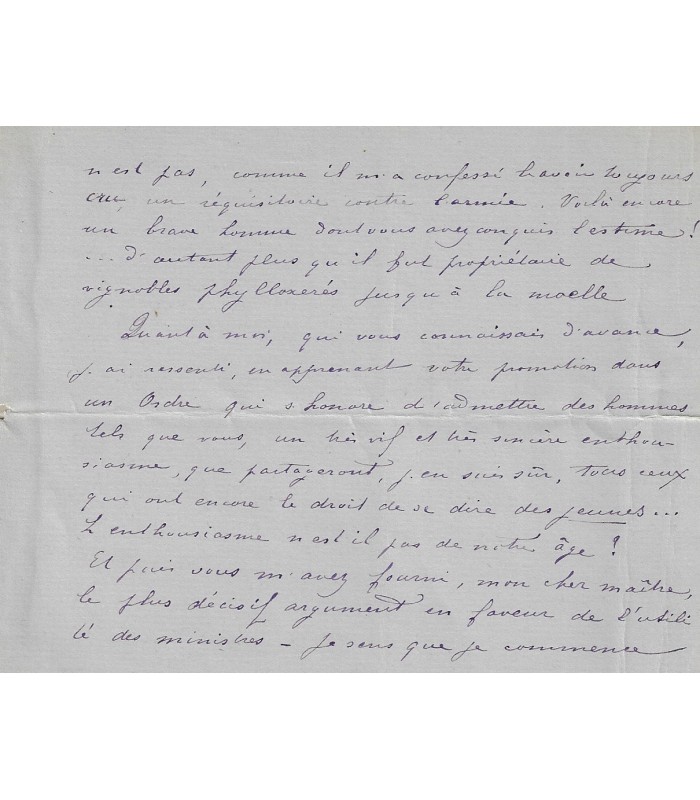 n'est pas, comme il m'a confessé l'avoir toujours
cru, un réquisitoire contre l'armée. Voilà encore
un brave homme dont vous avez conquis l'estime!
... d'autant plus qu'il fut propriétaire de
vignobles phylloxerés jusqu'à la moelle
Quant à moi, qui vous connaissais d'avance,
j'ai ressenti, en apprenant votre promotion dans
un Ordre qui s'honore d'admettre des hommes
tels que vous, un très vif et très sincère enthou-
siasme, que partageront, j'en suis sûr, tous ceux
qui ont encore le droit de se dire des jeunes...
L'enthousiasme n'est il pas de notre âge?
Et puis vous m'avez fourni, mon cher maître,
le plus décisif argument en faveur de l'utili
té des ministres - Je sens que je commence